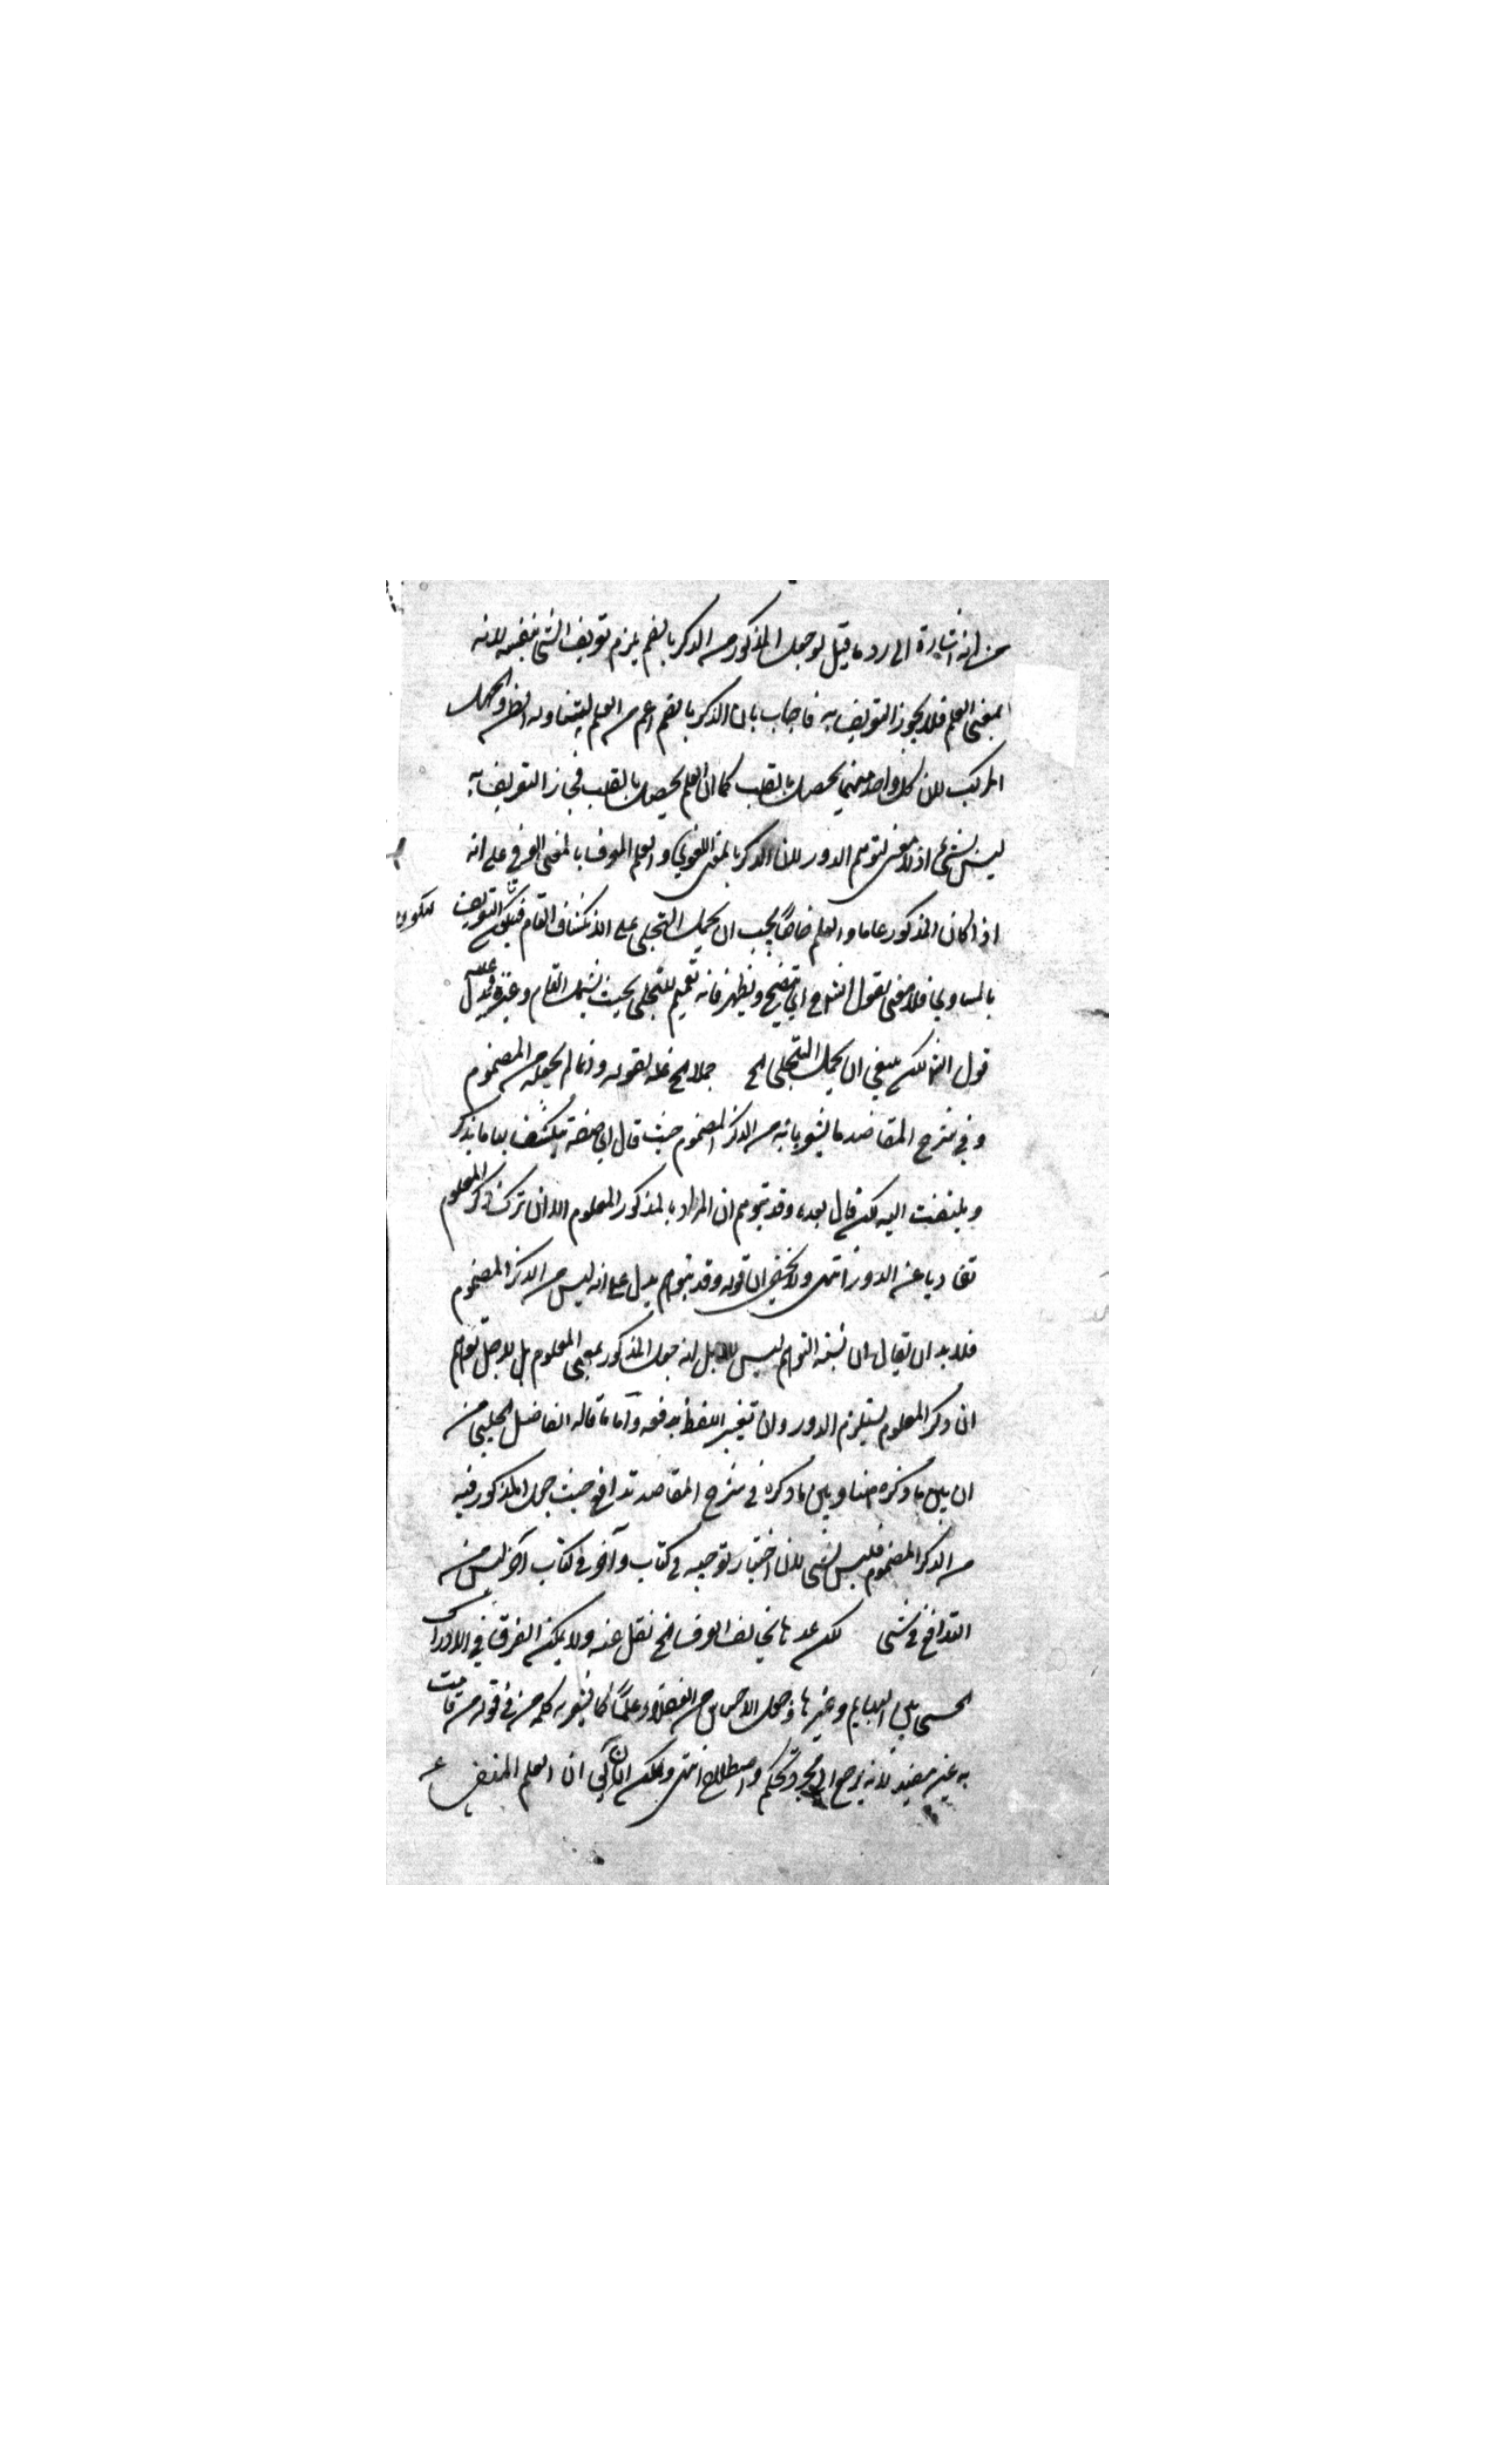 من انه اشارة الى رد ما قيل لو جعل المذكور من الذكر بالضم يلزم تعريف الشئ بنفسه لانه
بمعنى العلم فلا يجوز التعريف به فاجاب بان الذكر بالضم اعم من العلم ليتناوله الظن والجهل
المركب لان كل واحد منهما يحصل بالقلب كما ان العلم يحصل بالقلب فجاز التعريف به
ليس بشئ اذ لا معنى لتوهم الدور لان الذكر بالمعنى اللغوي والعلم المعرف بالمعنى العرفي على انه
اذا كان المذكور عاما والعلم خاصا يجب ان يحمل التجلي على الانكشاف التام فيكون التعريف
بالمساوي فلا معنى لقول الشارح اي يتضح ويظهر فانه تعميم للتجلي بحيث يشمل التام وغيره يدل عليه
قول الش لكن ينبغي ان يحمل التجلي الخ حملا الخ علة لقوله وانما لم يجعله من المضموم
وفي شرح المقاصد ما يشعر بانه من الذكر المضموم حيث قال اي صفة ينكشف بها ما يذكر
ويلتفت اليه لكن قال بعده وقد يتوهم ان المراد بالمذكور المعلوم الا ان ترك ذكر المعلوم
تفاديا عن الدور انتهى ولا يخفى ان قوله وقد يتوهم يدل على انه ليس من الذكر المضموم
فلا بد ان يقال ان نسبة التوهم ليس لاجل انه جعل المذكور بمعنى المعلوم بل لاجل توهم
ان ذكر المعلوم يستلزم الدور وان تغيير اللفظ يدفعه واما ما قاله الفاضل الجلبي من
ان بين ما ذكره هنا وبين ما ذكره في شرح المقاصد تدافع حيث جعل المذكور فيه
من الذكر المضموم فليس بشئ لان اختيار توجيه في كتاب وآخر في كتاب آخر ليس من
التدافع في شئ لكن عدها يخالف العرف الخ نقل عنه ولا يمكن الفرق في الادراك
الحسي بين البهايم وغيرها وجعل الاحساس من العقلاء علمًا كما يشعر به كلمة من في قوله من قامت
به غير مفيد لانه يرجع الى مجرد تحكم واصطلاح انتهى ولكن ان يأتي ان العلم المنفى عن